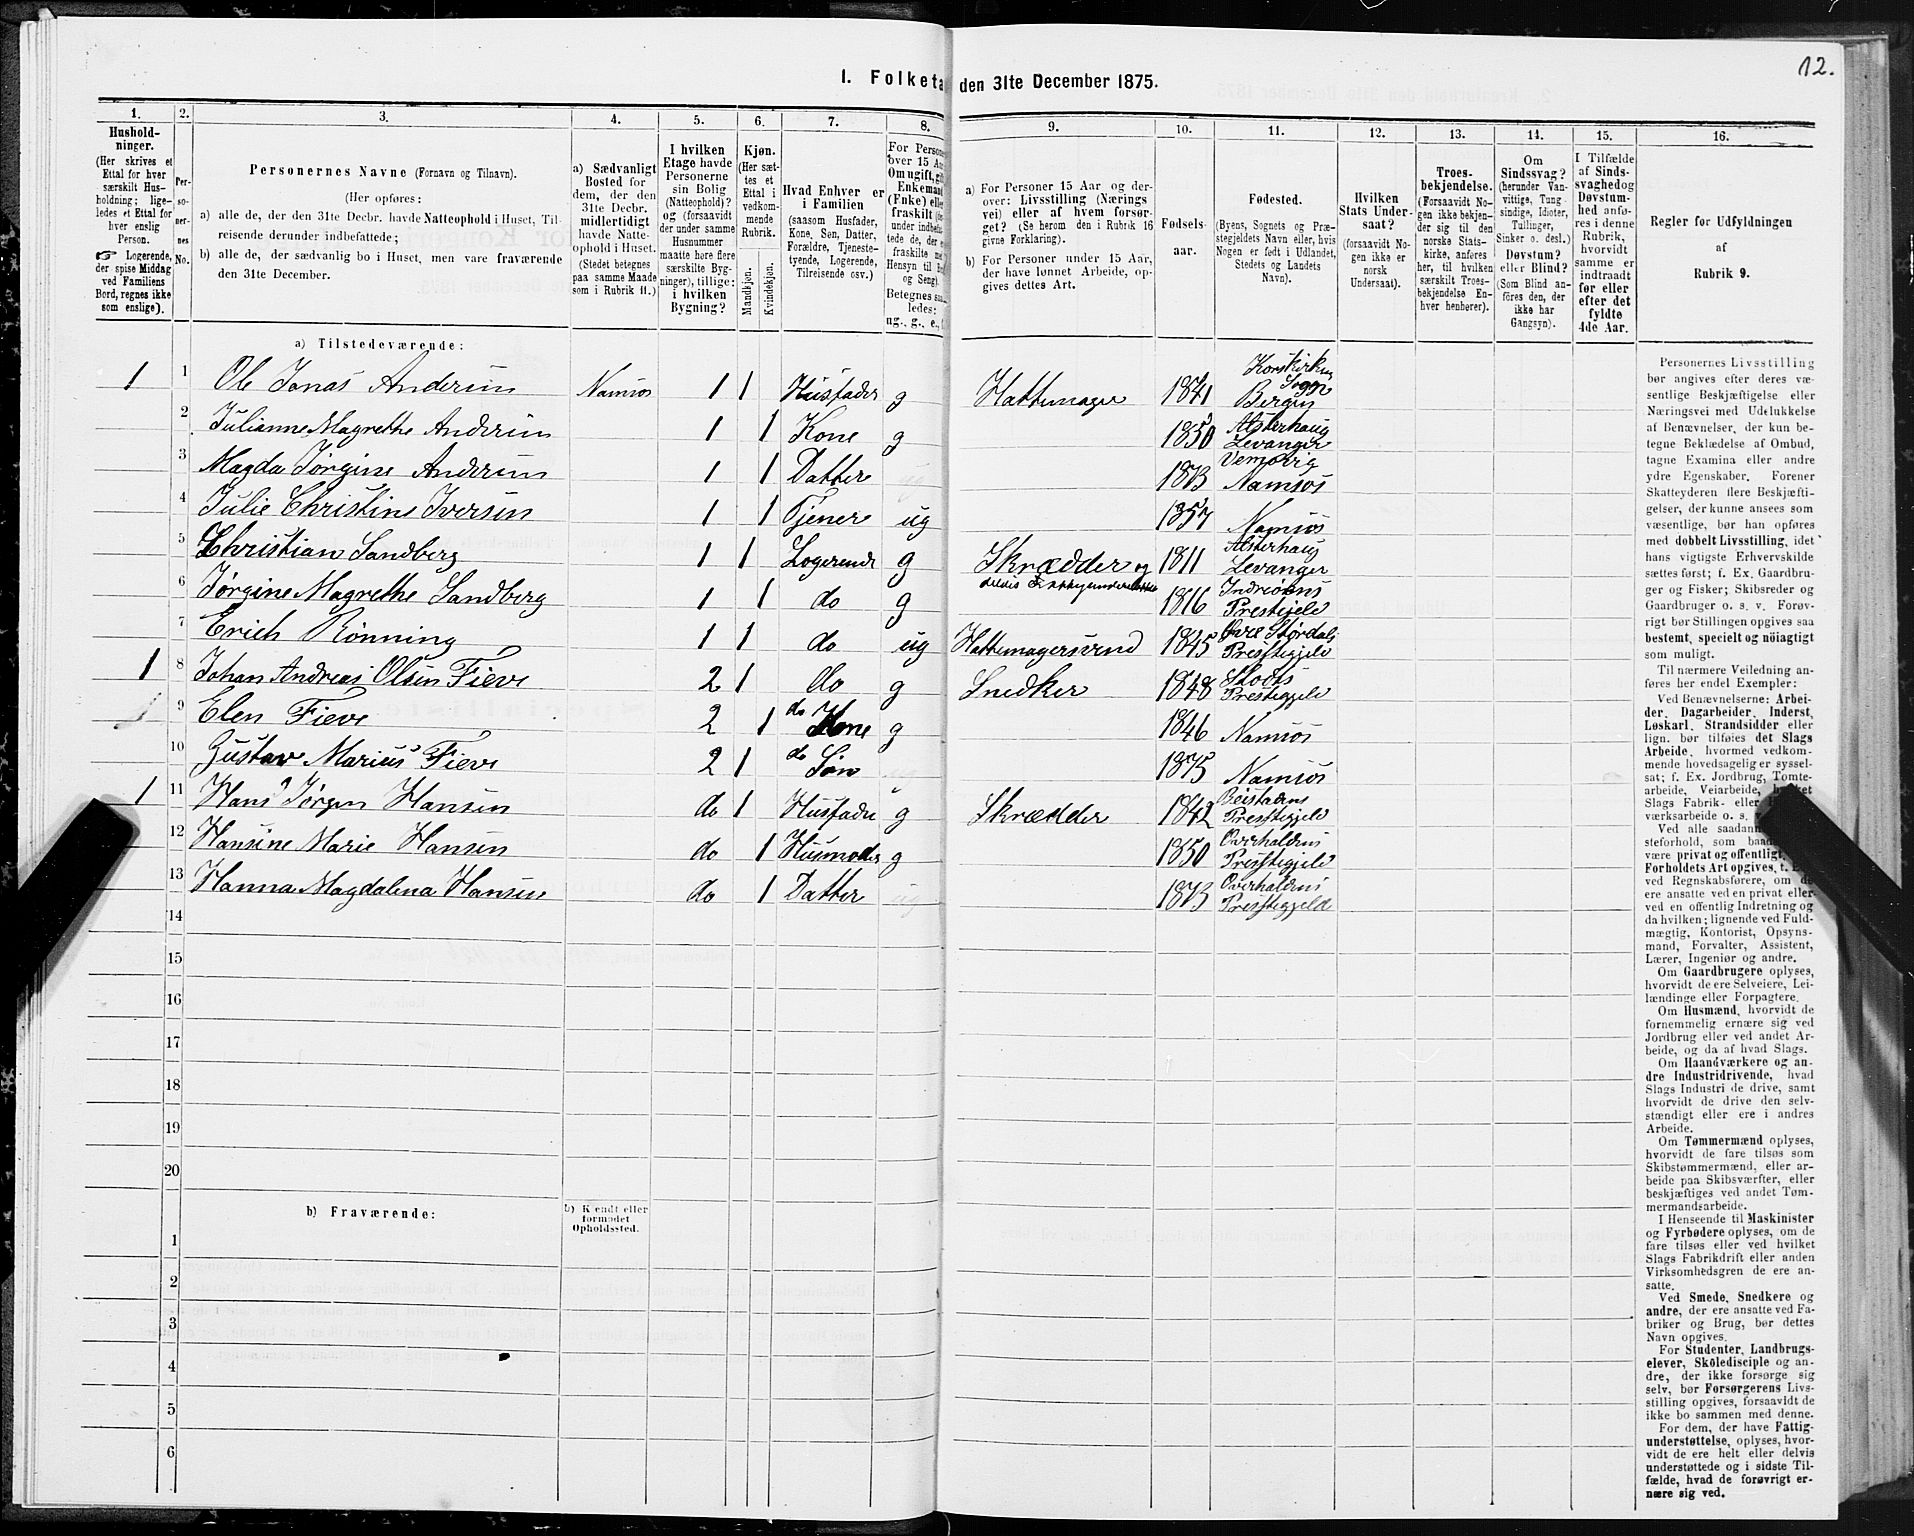 12.
I. Folketa den 31te December 1875.
1. 2. 3. 4. 5. 6. 7. 8. 9. 10. 11. 12. 13. 14. 15. 16.
Hushold-
ninger.
(Her skrives et
Ettal for hver
særskilt Hus-
holdning; lige-
ledes et Ettal for
hver enslig
Person.
☞ Logerende,
der spise Middag
ved Familiens
Bord, regnes ikke
som enslige).
Per-
so-
ner-
nes
No.
Personernes Navne (Fornavn og Tilnavn).
(Her opføres:
a) alle de, der den 31te Decbr. havde Natteophold i Huset, Til-
reisende derunder indbefattede;
b) alle de, der sædvanlig bo i Huset, men vare fraværende
den 31te December.
a) Sædvanligt
Bosted for
dem, der den
31te Decbr.
midlertidigt
havde Natte-
ophold i Huset.
(Stedet betegnes
paa samme Maade
som i Rubrik 11.)
I hvilken
Etage havde
Personerne
sin Bolig
(Natteophold)?
og (forsaavidt
der under samme
Husnummer
maatte høre flere
særskilte Byg-
ninger), tillige:
i hvilken
Bygning?
Kjøn.
(Her sæt-
tes et
Ettal i
vedkom-
mende
Rubrik.
Mandkjøn.
Kvindekjøn.
Hvad Enhver er
i Familien
(saasom Husfader,
Kone, Søn, Datter,
Forældre, Tjeneste-
tyende, Logerende,
Tilreisende osv.)
For Persone
over 15 Aa
Om ugift, gif
Enkemand
(Enke) elle
fraskilt
under indbefa
tede de, der e
fraskilte me
Hensyn til Bo
og Seng).
Betegnes saa
ledes:
ug., g., e.,
a) For Personer 15 Aar og der-
over: Livsstilling (Nærings
vei) eller af hvem forsør-
get? (Se herom den i Rubrik 16
givne Forklaring).
b) For Personer under 15 Aar,
der have lønnet Arbeide, op-
gives dettes Art.
Fødsels-
aar.
Fødested.
(Byens, Sognets og Præ-
stegjeldets Navn eller, hvis
Nogen er født i Udlandet,
Stedets og Landets
Navn).
Hvilken
Stats Under-
saat?
(forsaavidt No-
gen ikke er
norsk
Undersaat).
Troes-
bekjendelse.
(Forsaavidt No-
gen ikke bekjen-
der sig til den
norske Stats-
kirke, anføres
her, til hvilken
særskilt Troes-
bekjendelse En-
hver henhører).
Om
Sindssvag?
(herunder Van-
vittige, Tung-
sindige, Idioter,
Tullinger,
Sinker o. desl.)
Døvstum?
eller Blind?
(Som Blind an-
føres den, der
ikke har
Gangsyn).
I Tilfælde
af Sinds-
svaghed og
Døvstum-
hed anfø-
res i denne
Rubrik,
hvorvidt
samme er
indtraadt
før eller
efter det
fyldte
4de Aar.
Regler for Udfyldningen
af
Rubrik 9.
a) Tilstedeværende:
1 1 Ole Jonas Andersen Namsos 1 1 Husfader g Hattemager 1841 Korskirkens Sogn Bergen
2 Julianne Magrethe Andersen 1 1 Kone g 1850 Alsterhaug Levanger
3 Magda Jørgine Andersen 1 1 Datter ug 1873 Namsos
4 Julie Christine Iversen 1 1 Tjener ug 1857 Namsos
5 Christian Sandberg 1 1 Logerende g Skrædder og 1811 Alsterhaug Levanger
6 Jørgine Magrethe Sandberg 1 1 do g 1816 Inderøens Prestegjeld
7 Erich Rønning 1 1 do ug Hattemagersvend 1845 Øvre Størdals Prestegjeld
1 8 Johan Andreas Olsen Fieve 2 1 do g Snedker 1848 Stods Prestegjeld
9 Elen Fieve 2 1 do Kone g 1846 Namsos
10 Gustav Marius Fieve 2 1 do Søn 1875 Namsos
1 11 Hans Jørgen Hansen do 1 Husfader g Skrædder 1842 Beistadens Prestegjeld
12 Hansine Marie Hansen do 1 Husmoder g 1850 Overhaldens Prestegjeld
13 Hanna Magdalena Hansen do 1 Datter ug 1873 Overhaldens Prestegjeld
14
15
16
17
18
19
20
b) Fraværende:
b) Kjendt eller
formodet
Opholdssted.
1
2
3
4
5
6
Personernes Livsstilling
bør angives efter deres væ-
sentlige Beskjæftigelse eller
Næringsvei med Udelukkelse
af Benævnelser, der kun be-
tegne Beklædelse af Ombud,
tagne Examina eller andre
ydre Egenskaber. Forener
Skatteyderen flere Beskjæfti-
gelser, der kunne ansees som
væsentlige, bør han opføres
med dobbelt Livsstilling, idet
hans vigtigste Erhvervskilde
sættes først; f. Ex. Gaardbru-
ger og Fisker; Skibsreder og
Gaardbruger o. s. v. Forøv-
rigt bør Stillingen opgives saa
bestemt, specielt og nöiagtigt
som muligt.
Til nærmere Veiledning an-
føres her endel Exempler:
Ved Benævnelserne: Arbei-
der, Dagarbeider, Inderst,
Løskarl, Strandsidder eller
lign. bør tilføies det Slags
Arbeide, hvormed vedkom-
mende hovedsagelig er syssel-
sat; f. Ex. Jordbrug, Tomte-
arbeide, Veiarbeide,
Slags Fabrik- eller
værksarbeide o. s.
Ved alle saadan
steforhold, som baa
være privat og offentligt,
Forholdets Art opgives, t. E
ved Regnskabsførere, om de
ere ansatte ved en privat eller
ved en offentlig Indretning og
da hvilken; lignende ved Fuld-
mægtig, Kontorist, Opsyns-
mand, Forvalter, Assistent,
Lærer, Ingeniør og andre.
Om Gaardbrugere oplyses,
hvorvidt de ere Selveiere, Lei-
lændinge eller Forpagtere.
Om Husmænd, hvorvidt de
fornemmelig ernære sig ved
Jordbrug eller ved andet Ar-
beide, og da af hvad Slags.
Om Haandværkere og an-
dre Industridrivende, hvad
Slags Industri de drive, samt
hvorvidt de drive den selv-
stændigt eller ere i andres
Arbeide.
Om Tømmermænd oplyses,
hvorvidt de fare tilsøs som
Skibstømmermænd, eller ar-
beide paa Skibsværfter, eller
beskjæftiges ved andet Tøm-
mermandsarbeide.
I Henseende til Maskinister
og Fyrbødere oplyses, om de
fare tilsøs eller ved hvilket
Slags Fabrikdrift eller anden
Virksomhedsgren de ere an-
satte.
Ved Smede, Snedkere og
andre, der ere ansatte ved Fa-
briker og Brug, bør dettes
Navn opgives.
For Studenter, Landbrugs-
elever, Skoledisciple og an-
dre, der ikke forsørge sig
selv, bør Forsørgerens Livs-
stilling opgives, forsaavidt de
ikke bo sammen med denne.
For dem, der have Fattig-
understøttelse, oplyses, hvor-
vidt de ere helt eller delvis
understøttede og i sidste Til-
fælde, hvad de forøvrigt er-
nære sig ved.